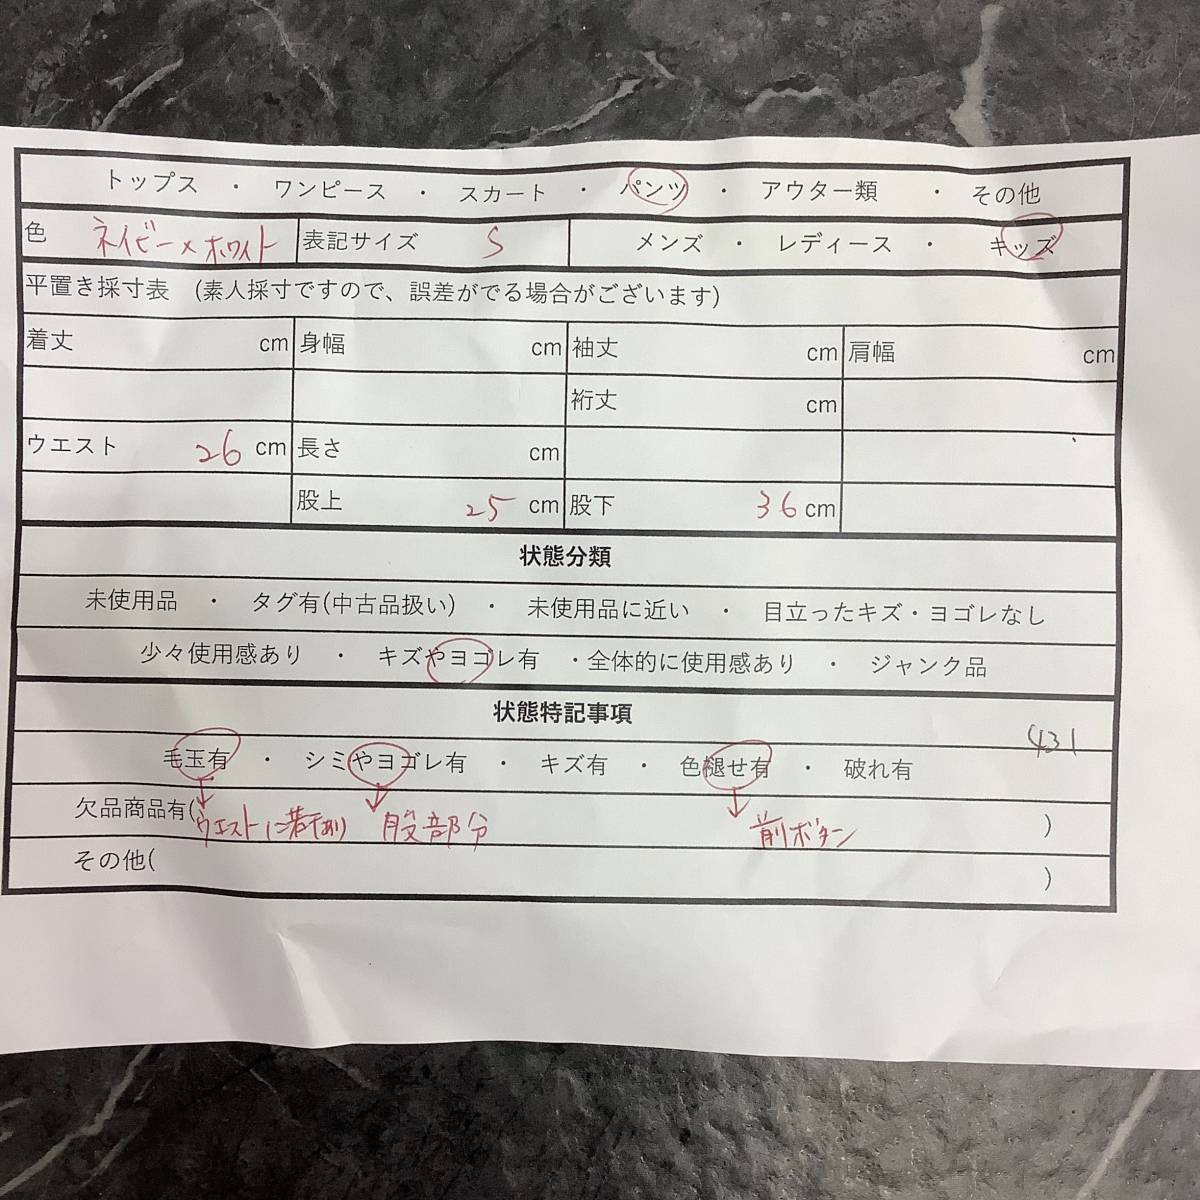 トップス ・ ワンピース ・ スカート ・ パンツ ・ アウター類 ・ その他
色 ネイビー×ホワイト 表記サイズ S メンズ ・ レディース ・ キッズ
平置き採寸表 (素人採寸ですので、誤差がでる場合がございます)
着丈 cm 身幅 cm 袖丈 cm 肩幅 cm
裄丈 cm
ウエスト 26 cm 長さ cm
股上 25 cm 股下 36 cm
状態分類
未使用品 ・ タグ有(中古品扱い) ・ 未使用品に近い ・ 目立ったキズ・ヨゴレなし
少々使用感あり ・ キズやヨゴレ有 ・全体的に使用感あり ・ ジャンク品
状態特記事項
431
毛玉有 ・ シミやヨゴレ有 ・ キズ有 ・ 色褪せ有 ・ 破れ有
欠品商品有( )
ウエストに若干あり 股部分 前ボタン
その他( )